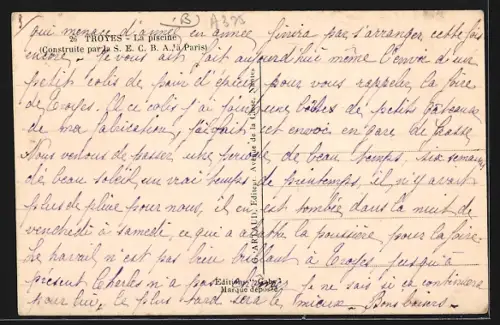 (B) A375
26 TROYES - La piscine
(Construite par la S. E. C. B. A. à Paris)
qui menace d'année en année finira par s'arranger cette fois
encore. Je vous ait fait aujourd'hui même l'envoi d'un
petit colis de pain d'épices pour vous rappeler la foire
de Troyes. A ce colis j'ai joint une boîte de petits gâteaux
de ma fabrication, j'ai fait cet envoi en gare de
Nous venons de passer une période de beau temps, six semaines
de beau soleil un vrai temps de printemps, il n'y avait
plus de pluie pour nous, il en est tombée dans la nuit de
vendredi à samedi, ce qui a la poussière pour la foire.
Le travail n'est pas bien brillant à Troyes, jusqu'à
présent Charles n'a pas Je ne sais si ça continuera
pour lui, le plus tard sera le mieux. Bons baisers.
G. ARTAUD, Editeur, Avenue de la Close, Nantes
Editions
Marque déposée